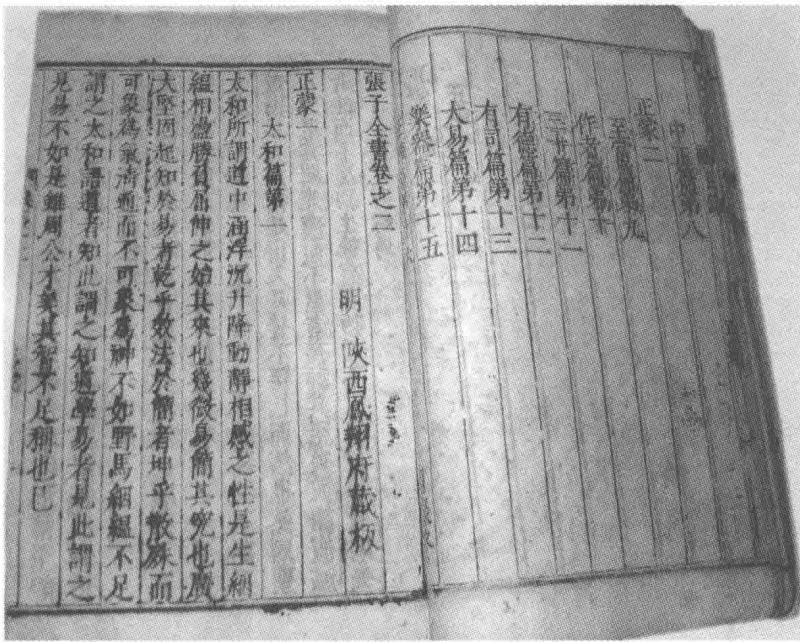 中正篇第八
正蒙二
至當篇第九
作者篇第十
三十篇第十一
有德篇第十二
有司篇第十三
大易篇第十四
樂器篇第十五
張子全書卷之二
明 陝西鳳翔府藏板
正蒙一
太和篇第一
太和所謂道中涵浮沉升降動靜相感之性是生絪
縕相盪勝負屈伸之始其來也幾微易簡其究也廣
大堅固起知於易者乾乎效法於簡者坤乎散殊而
可象爲氣清通而不可象爲神不如野馬絪縕不足
謂之太和語道者知此謂之知道學易者見此謂之
見易不如是雖周公才美其智不足稱也已